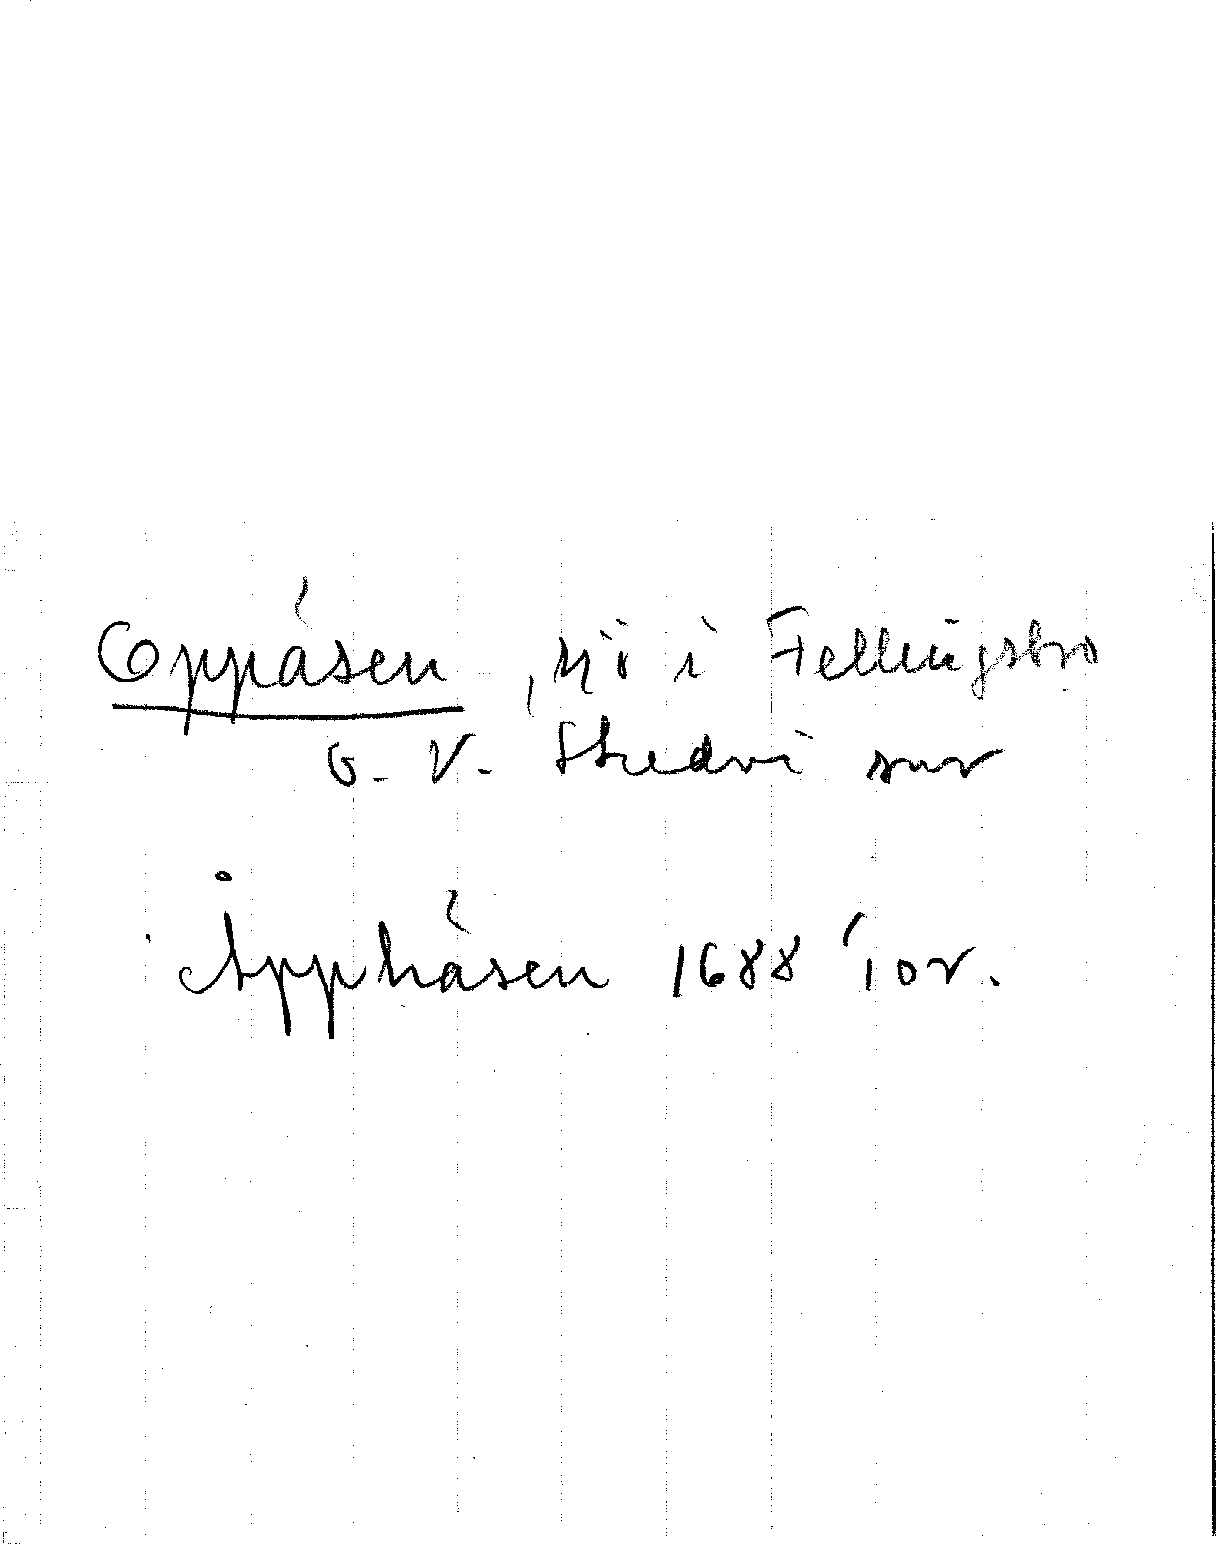 Oppåsen, sjö i Fellingsbro
o. V. Skedvi snr
Åpphåsen 1688 'Jor.